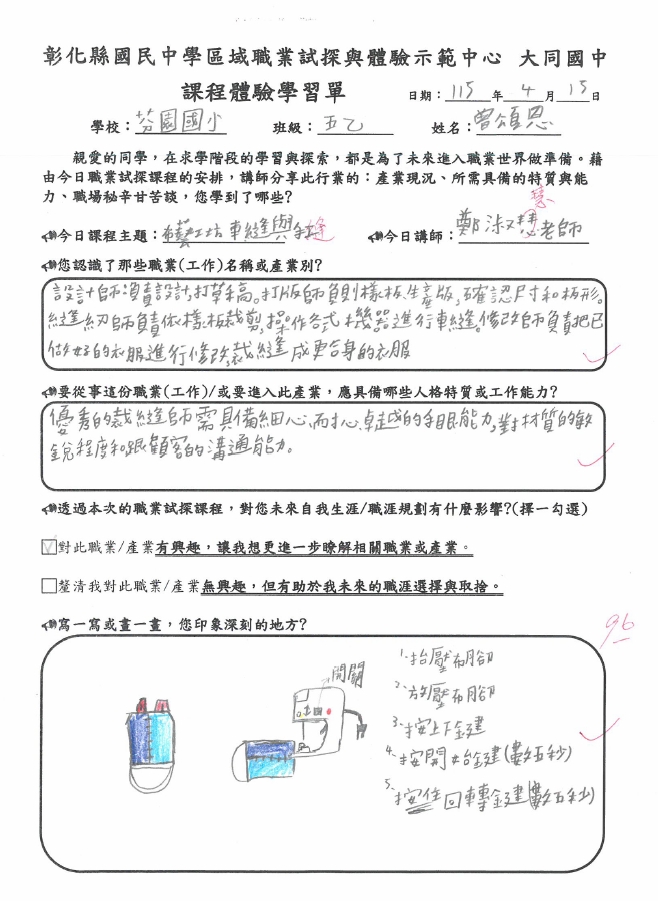 彰化縣國民中學區域職業試探與體驗示範中心 大同國中
課程體驗學習單
日期：115年4月15日
學校：芬園國小 班級：五乙 姓名：曾頌恩
親愛的同學，在求學階段的學習與探索，都是為了未來進入職業世界做準備。藉
由今日職業試探課程的安排，講師分享此行業的：產業現況、所需具備的特質與能
力、職場秘辛甘苦談，您學到了哪些?
慧
今日課程主題：布藝工坊車縫與手縫 今日講師：鄭淑慧老師
您認識了那些職業(工作)名稱或產業別?
設計師負責設計,打草稿。打版師負則樣板、生產版,確認尺寸和板形。
縫紉師負責依樣板裁剪,操作各式機器進行車縫。修改師負責把已
做好的衣服進行修改裁縫成更合身的衣服
要從事這份職業(工作)/或要進入此產業，應具備哪些人格特質或工作能力?
優秀的裁縫師需具備細心、耐心、卓越的手眼能力,對材質的敏
銳程度和跟顧客的溝通能力。
透過本次的職業試探課程，對您未來自我生涯/職涯規劃有什麼影響?(擇一勾選)
☑對此職業/產業有興趣，讓我想更進一步瞭解相關職業或產業。
□釐清我對此職業/產業無興趣，但有助於我未來的職涯選擇與取捨。
寫一寫或畫一畫，您印象深刻的地方?
96
開關
1.抬壓布腳
2.放壓布腳
3.按上下鍵
4.按開始鍵(數五秒)
5.按住回轉鍵(數五秒)